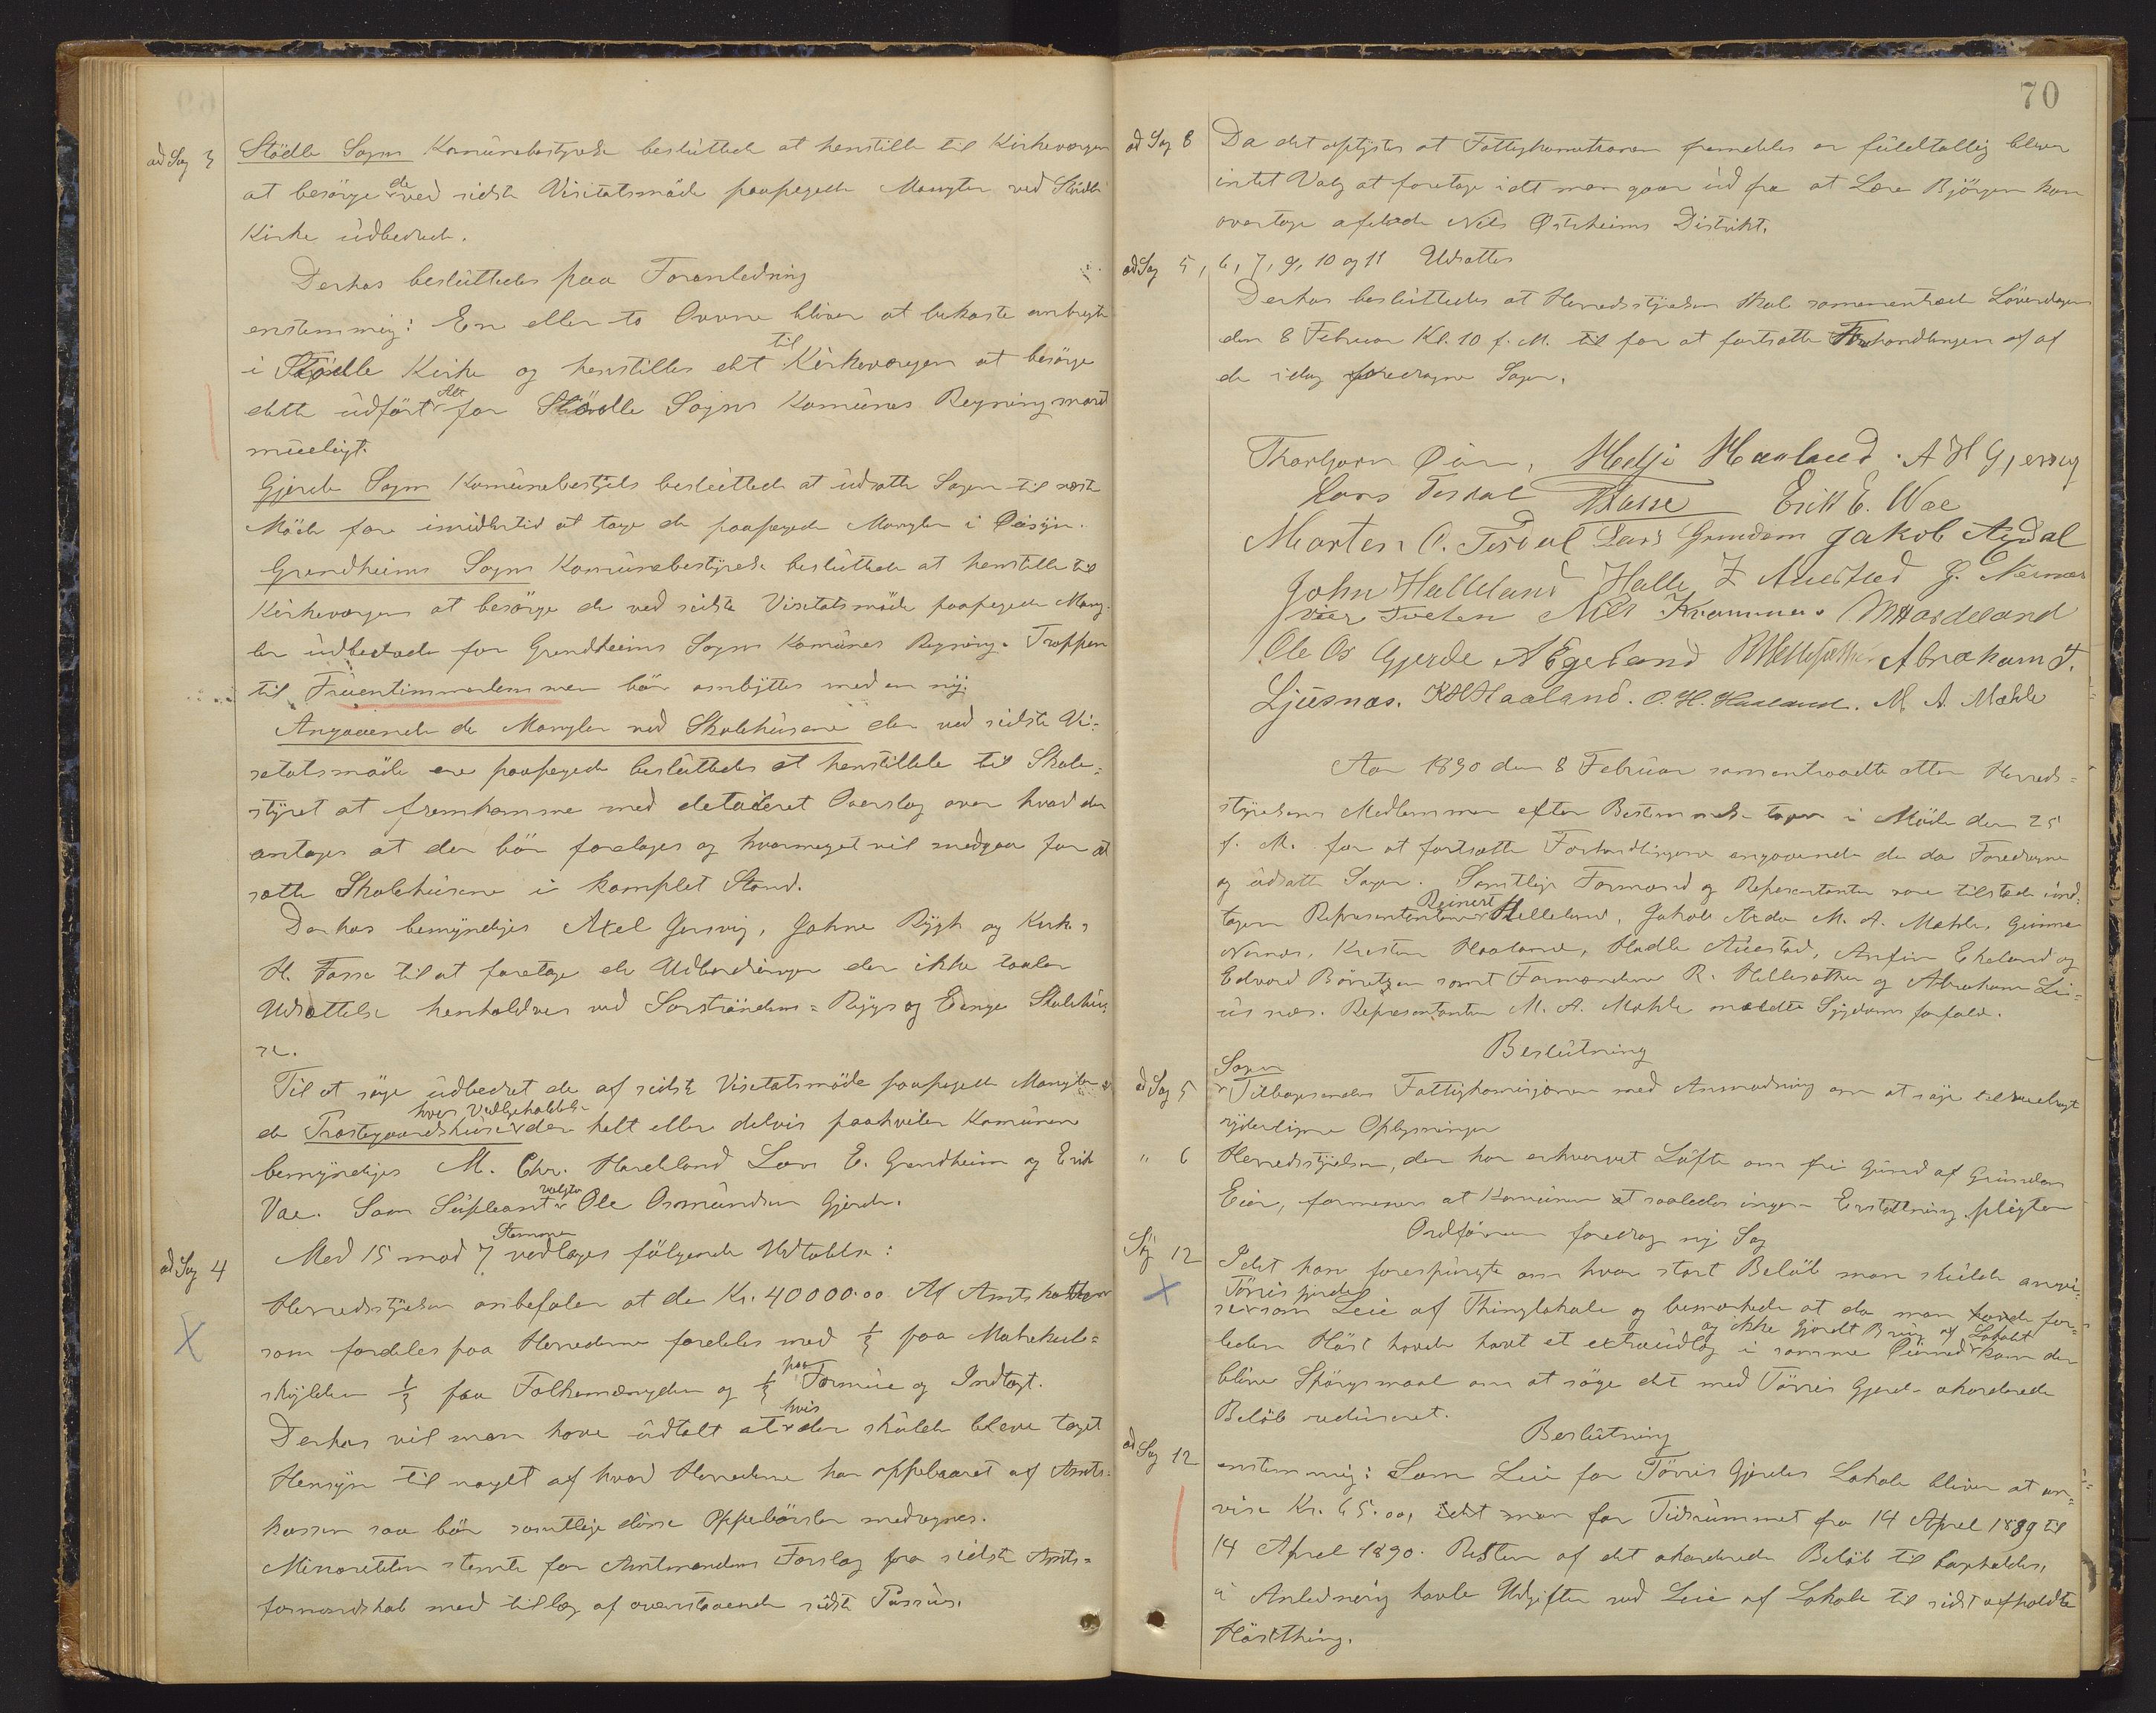 ad Sag 3 Stödle Sogns Komünebestyrelse beslüttede at henstille til Kirkevergen
at besörge de ved sidste Visitatsmöde paapegede Mangler ved Stödle
Kirke üdbedret.
Derhos beslüttedes paa Foranledning
enstemmig: En eller to Ovne bliver at bekoste anbragte
i Stödle Kirke og henstilles det til Kirkevergen at besörge
dette üdfört Alt for Stödle Sogns Komünes Regning snarest
müeligt.
Gjerde Sogns Komünebestyrelse beslüttede at üdsætte Sagen til næste
Möde for imidlertid at tage de paapegede Mangler i Öiesyn.
Grindheims Sogns Komünebestyrelse beslüttede at henstille til
Kirkevergen at besörge de ved sidste Visitatsmöde paapegede Mang-
ler üdbedrede for Grindheims Sogns Komünes Regning. Trappen
til Früentimmerlemmen bör ombyttes med en ny.
Angaaende de Mangler ved Skolehüsene der ved sidste Vi-
sitatsmöde ere paapegede beslüttedes at henstille til Skole-
styret at fremkomme med detaileret Overslag over hvad der
antages at der bör foretages og hvormeget vil medgaa for at
sætte Skolehüsene i komplet Stand.
Derhos bemyndiges Axel Gjersvig, Johne Rygh og Kirkes.
H. Fosse til at foretage de Udbedringer der ikke taaler
Udsættelse henholdsvis ved Sörstrandens- Rygs og Enge Skolehü-
se.
Til at söge üdbedret de af sidste Visitatsmöde paapegede Mangler
de Præstegaardshüse hvis Vedligeholdelse der helt eller delvis paahviler Komünen
bemyndiges M. Chr. Hardeland Lars E. Grindheim og Erik
Vae. Som Süpleant valgtes Ole Osmündsen Gjerde.
ad Sag 4 Med 15 mod 7 Stemmer vedtages fölgende Udtalelse:
Herredsstyrelsen anbefaler at de Kr. 40000.00 Af Amtskatten
som fordeles paa Herrederne fordeles med 1/3 paa Matrikul-
skylden 1/3 paa Folkemængden og 1/3 paa Formüe og Indtægt.
Derhos vil man have üdtalt at hvis der skülde bleve taget
Hensyn til noget af hvad Herrederne har oppebaaret af Amts-
kassen saa bör samtlige disse Oppebörsler medregnes.
Minoriteten stemte for Amtmandens Forslag fra sidste Amts-
formandskab med tillæg af ovenstaaende sidste Passüs.
70
ad Sag 8 Da det oplystes at Fattigkomissionen fremdeles er füldtallig bliver
intet Valg at foretage idet man gaar üd fra at Lære Björgen kan
overtage afdöde Nils Østeheims Distrikt.
ad Sag 5, 6, 7, 9, 10 og 11 Udsattes
Derhos beslüttedes at Herredsstyrelsen skal sammentræde Löverdagen
den 8 Februar Kl. 10 f. M. til for at fortsætte Forhandlingen af af
de idag foredragne Sager.
Thorbjørn Øien, Heltji Haaland. A H Gjersvig
Lars Tesdal Fosse Erik E. Vae
Morten O. Tesdal Lars Grindem Jakob Azdal
John Halleland Halle Z. Auestad G. Næmnes
Iver Tveten Nils Krammer M Hardeland
Ole Os Gjerde A Egeland R Hellesæther Abraham J.
Ljüsnæs. K H Haaland. O. H. Haaland. M A. Mæhle
Aar 1890 den 8 Februar sammentraadte atter Herreds-
styrelsens Medlemmer efter Bestemmelse tagen i Möde den 25
f. M. for at fortsætte Forhandlingerne angaaende de da Foredragne
og üdsatte Sager. Samtlige Formænd og Representanter vare tilstede ünd-
tagen Representanterne Reinert Helleland, Jakob Azdal M. A. Mæhle, Gunnar
Nernes, Kristen Haaland, Hadle Aüestad, Anfin Ekeland og
Edvard Börretzen samt Formændene R. Hellesæther og Abraham Lju-
üsnæs. Representanten M. A. Mæhle meldte Sygdoms forfald.
Beslütning
ad Sag 5 Sagen Tilbagesendes Fattigkomisjonen med Anmodning om at söge tilveiebragt
yderligere Oplysninger
" 6 Herredsstyrelsen, der har erhvervet Löfte om fri Gründ af Gründens
Eier, formener at Komünen at saaledes ingen Erstattning pligter
Ordföreren foredrog ny Sag
Sag 12 Idet han forespürgte om hvor stort Belöb man skülde anvi-
se Törris Gjerde som Leie af Thinglokale og bemærkede at da man havde for-
leden Höst havde havt et extraüdlæg i samme Öiemed og ikke Gjordt Brüg af Lokalet kan der
blive Spörgsmaal om at söge det med Törris Gjerde akorderede
Belöb redüseret.
Beslütning
ad Sag 12 enstemmig: Som Leie for Törris Gjerdes Lokale bliver at an-
vise Kr. 65.00, idet man for Tidsrümmet fra 14 April 1889 til
14 April 1890. Resten af det akorderede Belöb tilbageholdes,
i Anledning havte Udgifter ved Leie af Lokale til sidst afholdte
Höstthing.